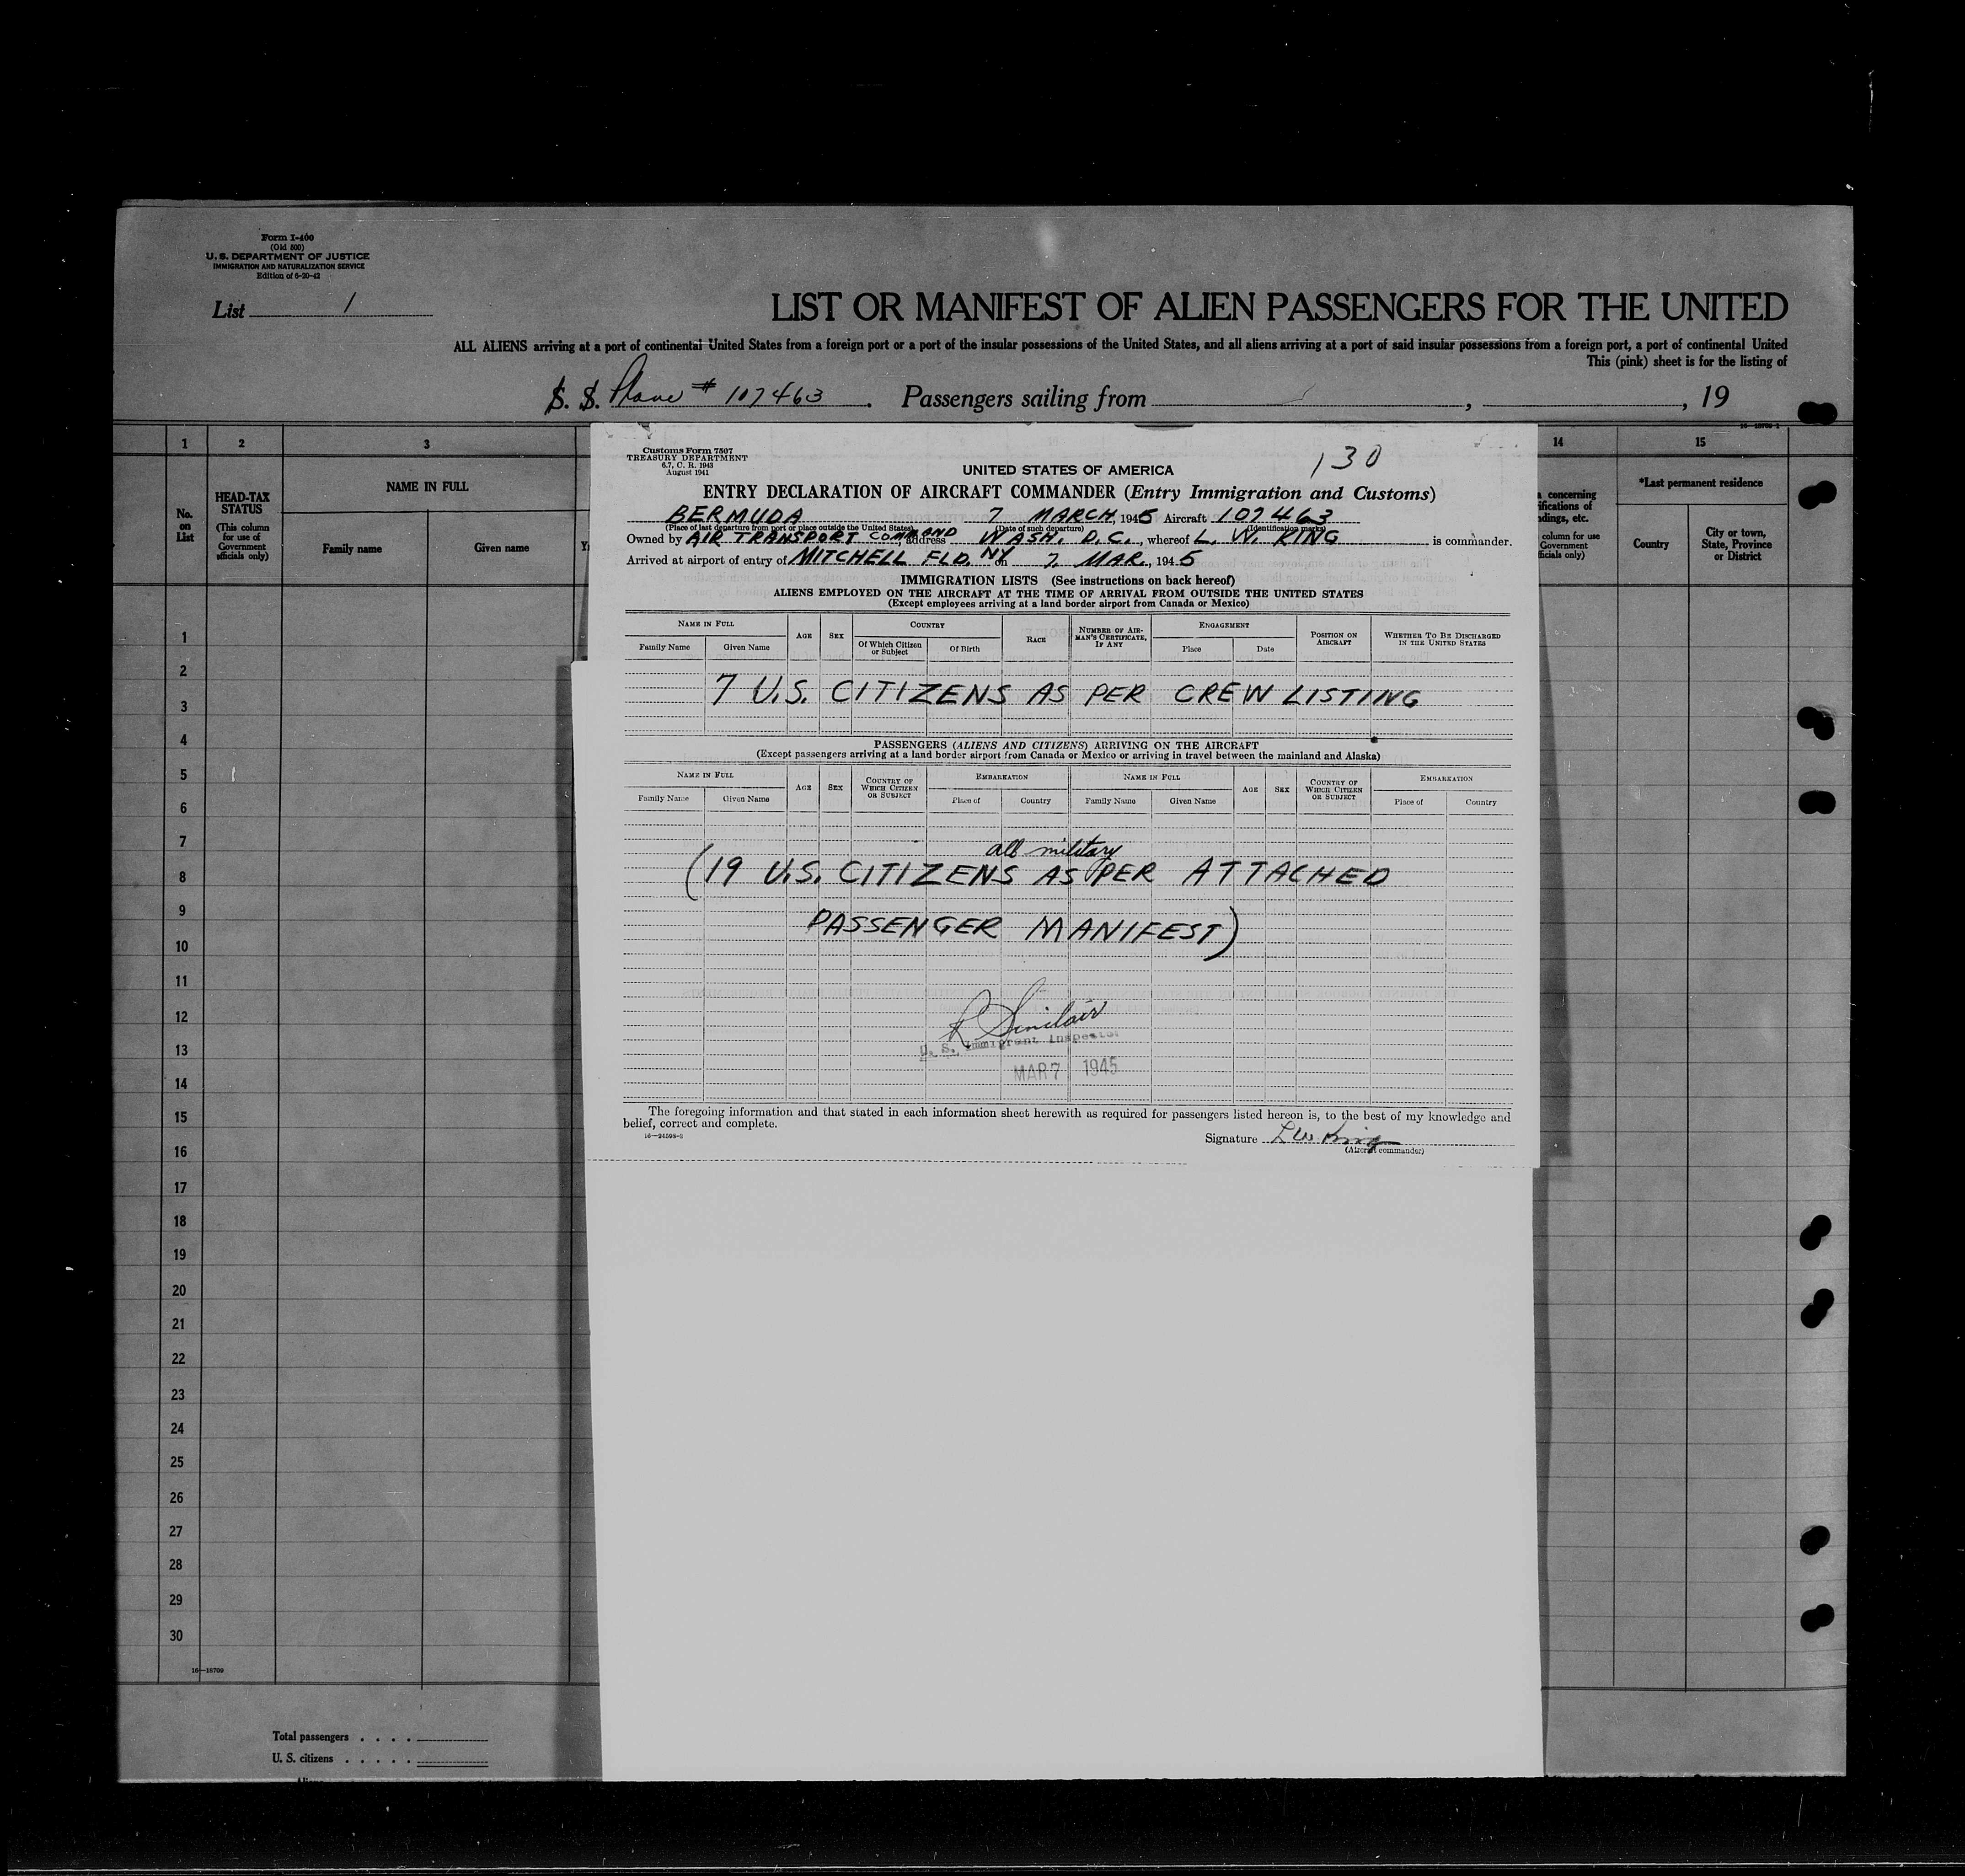 Form I-400
(Old 500)
U. S. DEPARTMENT OF JUSTICE
IMMIGRATION AND NATURALIZATION SERVICE
Edition of 6-20-42
List 1
LIST OR MANIFEST OF ALIEN PASSENGERS FOR THE UNITED
ALL ALIENS arriving at a port of continental United States from a foreign port or a port of the insular possessions of the United States, and all aliens arriving at a port of said insular possessions from a foreign port, a port of continental United
This (pink) sheet is for the listing of
S. S. Plane # 107463 . Passengers sailing from , , 19
1 2 3 14 15
No. on List
HEAD-TAX STATUS
(This column for use of Government officials only)
NAME IN FULL
Family name Given name
concerning
ifications of
dings, etc.
column for use
Government
ficials only)
*Last permanent residence
Country
City or town, State, Province or District
Customs Form 7507
TREASURY DEPARTMENT
6.7, C. R. 1943
August 1941
130
UNITED STATES OF AMERICA
ENTRY DECLARATION OF AIRCRAFT COMMANDER (Entry Immigration and Customs)
BERMUDA 7 MARCH, 1945 Aircraft 107463
(Place of last departure from port or place outside the United States) (Date of such departure) (Identification marks)
Owned by AIR TRANSPORT COMMAND, address WASH. D.C., whereof L. W. KING is commander.
Arrived at airport of entry of MITCHELL FLD. NY on 7 MAR., 1945
IMMIGRATION LISTS (See instructions on back hereof)
ALIENS EMPLOYED ON THE AIRCRAFT AT THE TIME OF ARRIVAL FROM OUTSIDE THE UNITED STATES
(Except employees arriving at a land border airport from Canada or Mexico)
NAME IN FULL AGE SEX COUNTRY RACE NUMBER OF AIRMAN'S CERTIFICATE, IF ANY ENGAGEMENT POSITION ON AIRCRAFT WHETHER TO BE DISCHARGED IN THE UNITED STATES
Family Name Given Name Of Which Citizen or Subject Of Birth Place Date
7 U.S. CITIZENS AS PER CREW LISTING
PASSENGERS (ALIENS AND CITIZENS) ARRIVING ON THE AIRCRAFT
(Except passengers arriving at a land border airport from Canada or Mexico or arriving in travel between the mainland and Alaska)
NAME IN FULL AGE SEX COUNTRY OF WHICH CITIZEN OR SUBJECT EMBARKATION NAME IN FULL AGE SEX COUNTRY OF WHICH CITIZEN OR SUBJECT EMBARKATION
Family Name Given Name Place of Country Family Name Given Name Place of Country
all military
(19 U.S. CITIZENS AS PER ATTACHED
PASSENGER MANIFEST)
R Sinclair
U. S. Immigrant Inspector
MAR 7 1945
The foregoing information and that stated in each information sheet herewith as required for passengers listed hereon is, to the best of my knowledge and
belief, correct and complete.
16—24598-2
Signature L W King
(Aircraft commander)
1
2
3
4
5
6
7
8
9
10
11
12
13
14
15
16
17
18
19
20
21
22
23
24
25
26
27
28
29
30
16—18709
Total passengers . . . .
U. S. citizens . . . . .